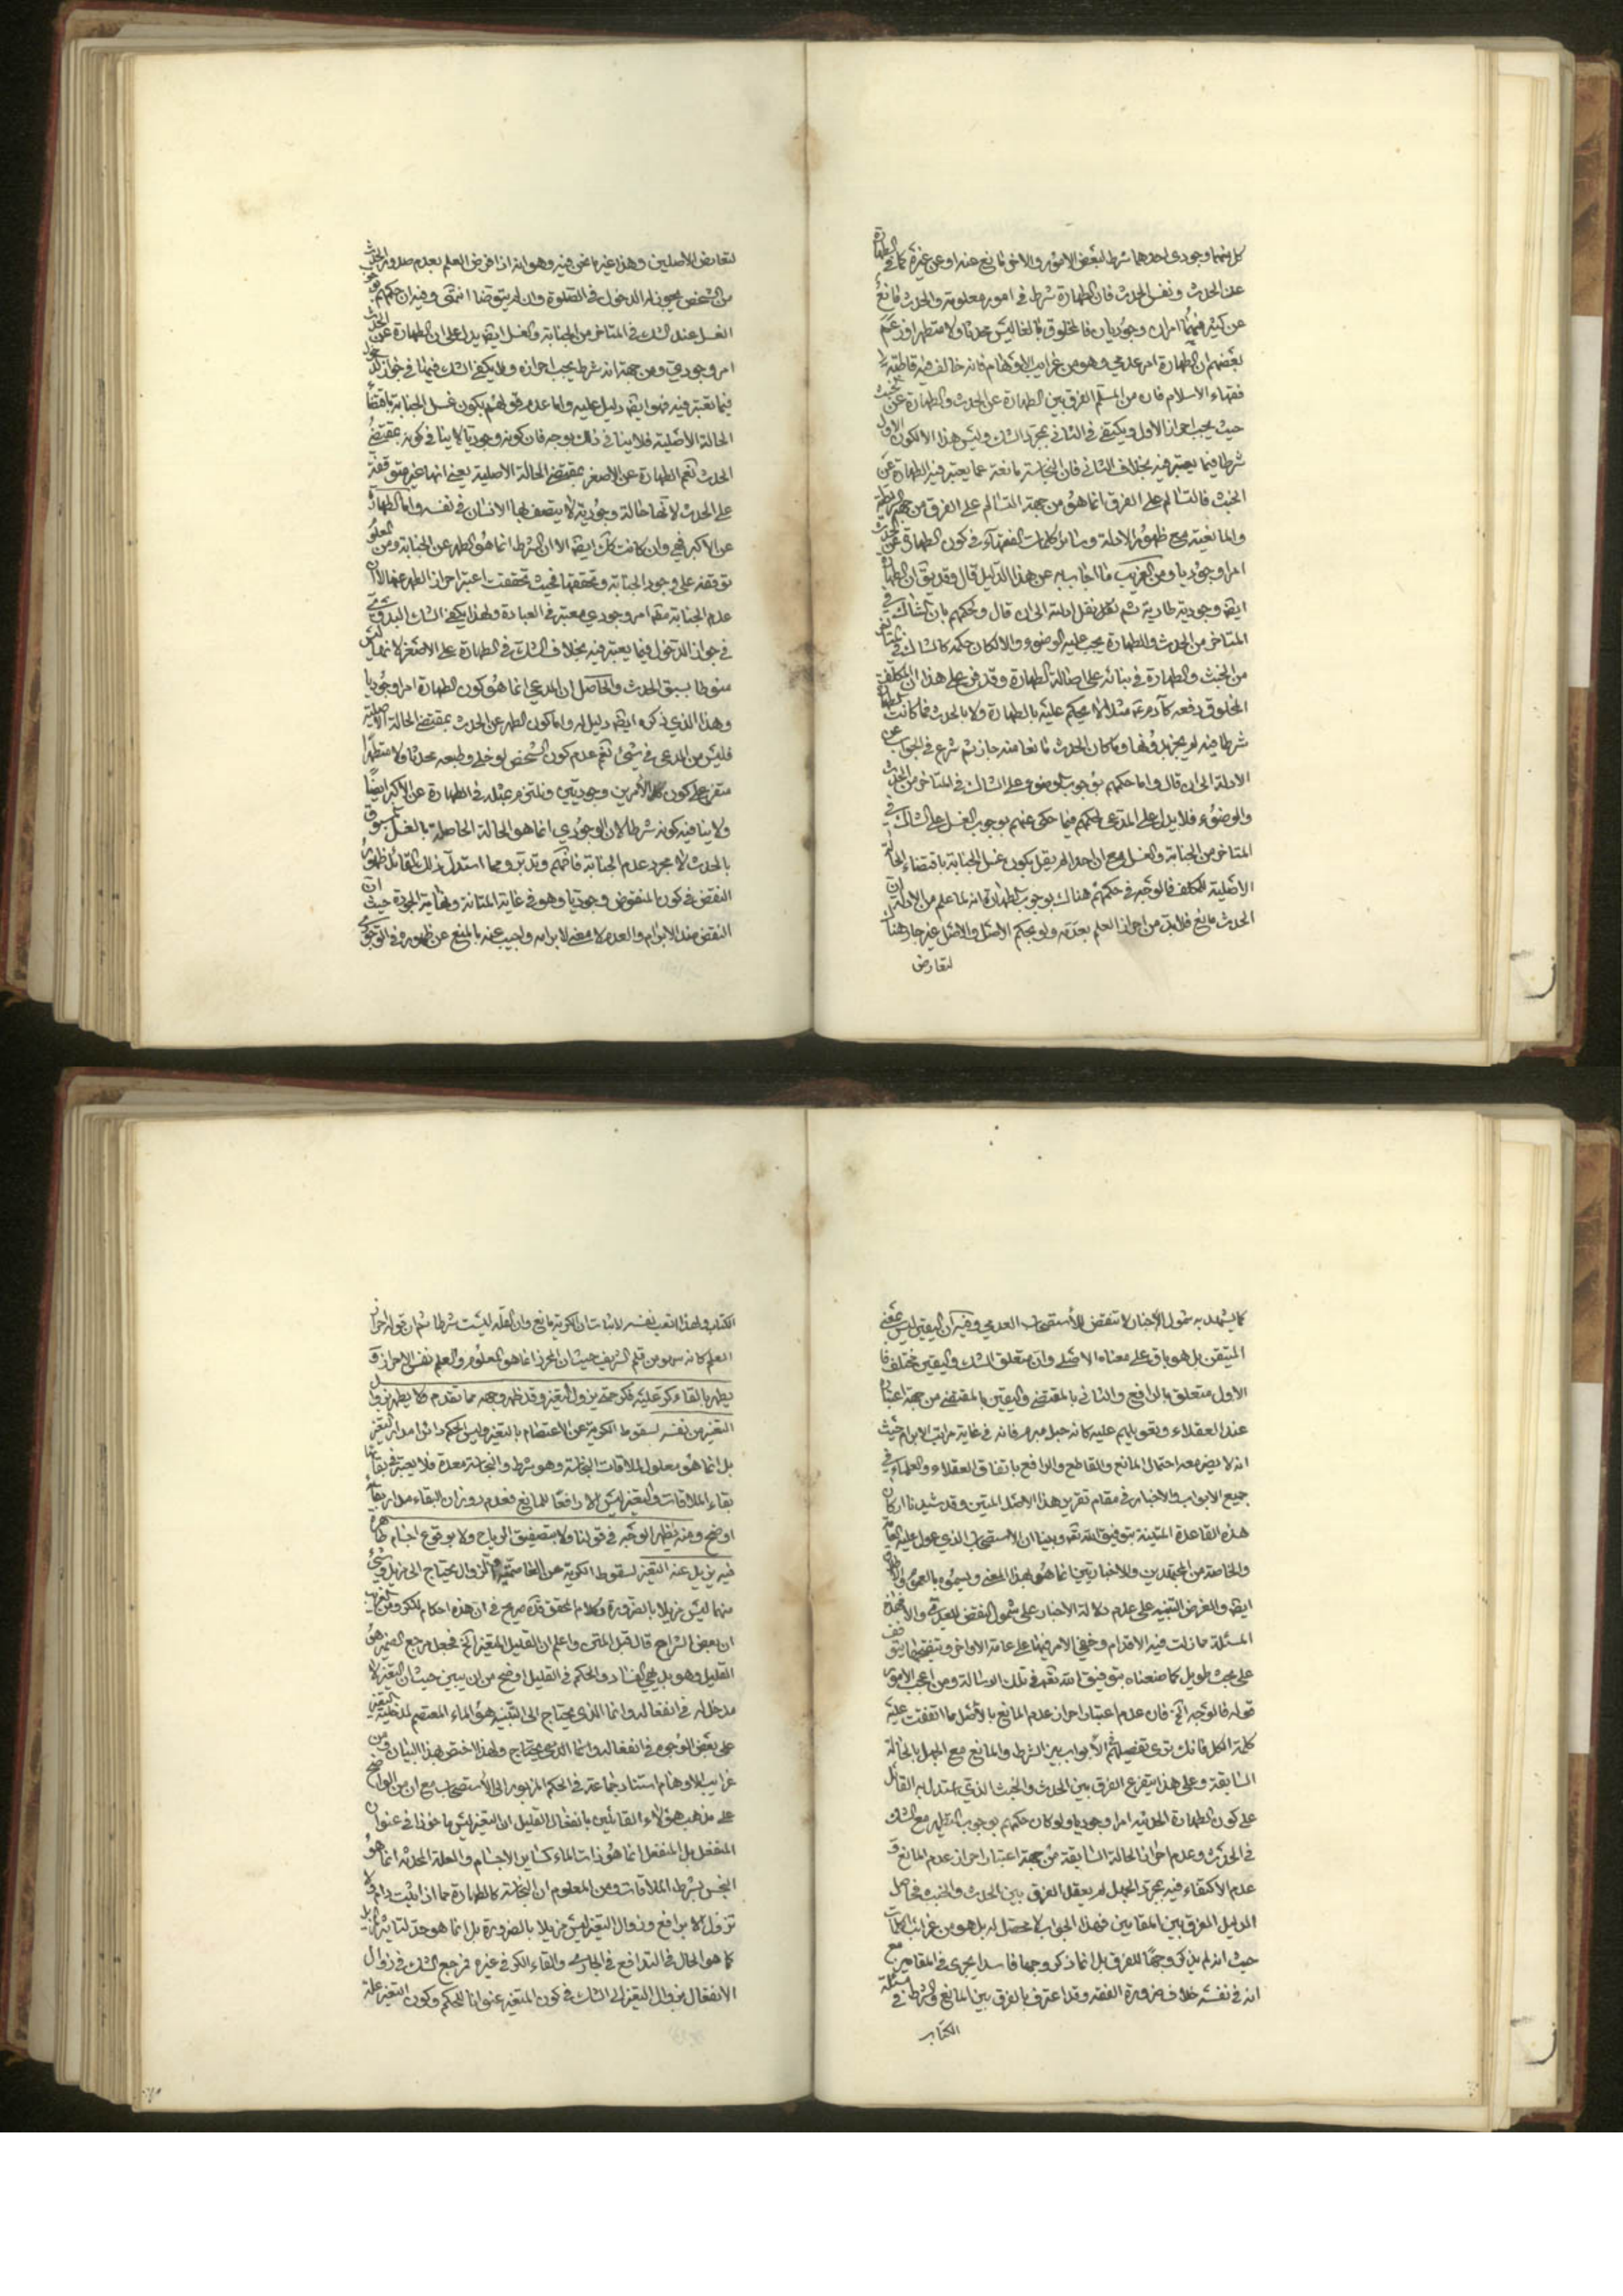 كل منهما وجودى احدهما شرط لبعض الامور والاخر مانع عنه او عن غيره كما فى الطهارة
عن الحدث ونفس الحدث فان الطهارة شرط فى امور معلومة والحدث مانع
عن كثير منهما امران وجوديان فالمخلوق بالغا ليس محدثا ولا متطهرا وزعم
بعضهم ان الطهارة امر عدمي وهو من غرايب الاوهام فانه خالف فيه قاطبة
فقهاء الاسلام فان من المسلم الفرق بين الطهارة عن الحدث والطهارة عن الخبث
حيث يجب احراز الاول ويكتفى فى الثانى بمجرد الشك وليس هذا الا لكون الاول
شرطا فيما يعتبر فيه بخلاف الثانى فان النجاسة مانعة عما يعتبر فيه الطهارة عن
الخبث فالتسالم على الفرق انما هو من جهة التسالم على الفرق من جهة الشرطية
والمانعية مع ظهور الادلة وسائر كلمات الفقهآء فى كون الطهارة عن الحدث
امرا وجوديا ومن الغريب ما اجاب به عن هذا الدليل قال وقد يق ان الطهارة
ايضا وجودية طارية ثم نقل ادلته الى ان قال وحكمهم بان الشاك فى
المتاخر من الحدث والطهارة يجب عليه الوضوء والا لكان حكمه كالشاك فى المتاخر
من الخبث والطهارة فى بنائه على اصالة الطهارة وقد فرع على هذا ان المكلف
المخلوق دفعه كآدم ع مثلا لا يحكم عليه بالطهارة ولا بالحدث فما كانت الطهارة
شرطا فيه لم يجز بدونها وما كان الحدث مانعا منه جاز ثم شرع فى الجواب عن
الادلة الى ان قال واما حكمهم بوجوب الوضوء على الشاك فى المتاخر من الحدث
والوضوء فلا يدل على المدعى لحكمهم فيما حكى عنهم بوجوب الغسل على الشاك فى
المتاخر من الجنابة والغسل مع ان احدا لم يقل بكون غسل الجنابة باقتضاء الحالة
الاصلية للمكلف فالوجه فى حكمهم هناك بوجوب الطهارة انه لما علم من الادلة ان
الحدث مانع فلابد من احراز العلم بعدمه ولو بحكم الاصل والاصل غير جار هنا
لتعارض
لتعارض الاصلين وهذا غير ما نحن فيه وهو انه اذا فرض العلم بعدم صدور الحدث
من الشخص يجوز له الدخول فى الصلوة وان لم يتوضا انتهى وفيه ان حكمهم بوجوب
الغسل عند الشك فى المتاخر من الجنابة والغسل ايضا يدل على ان الطهارة عن الحدث
امر وجودي ومن جهة انه شرط يجب احرازه ولا يكفى الشك فيها فى جواز الدخول
فيما تعتبر فيه فهو ايضا دليل عليه واما عدم قولهم بكون غسل الجنابة باقتضاء
الحالة الاصلية فلا ينافى ذلك بوجه فان كونه وجوديا لا ينافى كونه بمقتضى
الحدث نعم الطهارة عن الاصغر بمقتضى الحالة الاصلية يعنى انها غير متوقفة
على الحدث لانها حالة وجودية لا يتصف بها الانسان فى نفسه واما الطهارة
عن الاكبر فهي وان كانت كك ايضا الا ان الشرط انما هو الطهر عن الجنابة ومن المعلوم
توقفه على وجود الجنابة وتحققها فحيث تحققت اعتبر احراز الطهر عنها لا ان
عدم الجنابة مقه امر وجودي معتبر فى العبادة ولهذا يكفى الشك البدوي
فى جواز الدخول فيما يعتبر فيه بخلاف الشك فى الطهارة على الاصغر لانها ليس
منوطا بسبق الحدث والحاصل ان المدعى انما هو كون الطهارة امرا وجوديا
وهذا الذي ذكره ايضا دليل له واما كون الطهر عن الحدث بمقتضى الحالة الاصلية
فليس من المدعى فى شىء نعم عدم كون الشخص لو خلى وطبعه محدثا ولا متطهرا
متفرع على كون كلا الامرين وجوديين ونلتزم بمثله فى الطهارة عن الاكبر ايضا
ولا ينافيه كونه شرطا لان الوجودي انما هو الحالة الحاصلة بالغسل المسبوق
بالحدث لا مجرد عدم الجنابة فافهم وتدبر ومما استدل به ذلك القائل ظهور
النقض فى كون المنقوض وجوديا وهو فى غاية المتانة ونهاية الجودة حيث ان
النقض ضد الابرام والعدم لا معنى لابرامه واجيب عنه بالمنع عن ظهوره فى الوجودى
كما يشهد به شمول الاخبار لا تنقض للاستصحاب العدمي وفيه ان اليقين ليس بمعنى
المتيقن بل هو باق على معناه الاصلى وان متعلق الشك واليقين مختلف فان
الاول متعلق بالرافع والثانى بالمقتضى واليقين بالمقتضى من جهة اعتباره
عند العقلاء وتعويلهم عليه كانه حبل مبرم فانه فى غاية مراتب الابرام حيث
انه لا يضر معه احتمال المانع والقاطع والرافع باتفاق العقلاء والعلماء فى
جميع الابواب والاخبار فى مقام تقرير هذا الاصل المتين وقد شيدنا اركان
هذه القاعدة المتينة بتوفيق الله تعه وبينا ان الاستصحاب الذي عول عليه العامة
والخاصة من المجتهدين والاخباريين انما هو بهذا المعنى ويسموه بالعموم والاطلاق
ايضا والغرض التنبيه على عدم دلالة الاخبار على شمول النقض للعدمى والا فهذه
المسئلة مما زلت فيه الاقدام وخفى الامر فيها على عامة الاواخر وتنقيحها يتوقف
على بحث طويل كما صنعناه بتوفيق الله تعه فى تلك الرسالة ومن اعجب الامور
قوله فالوجه الخ فان عدم اعتبار احراز عدم المانع بالاصل مما اتفقت عليه
كلمة الكل فانك ترى تفصيلهم فى الابواب بين الشرط والمانع مع الجهل بالحالة
السابقة وعلى هذا يتفرع الفرق بين الحدث والخبث الذي استدل به القائل
على كون الطهارة الحدثية امرا وجوديا ولو كان حكمهم بوجوب التطهير مع الشك
فى الحدث وعدم احراز الحالة السابقة من جهة اعتبار احراز عدم المانع و
عدم الاكتفاء فيه بمجرد الجهل لم يعقل الفرق بين الحدث والخبث فحاصل
الدليل الفرق بين المقامين فهذا الجواب لا محصل له بل هو من غرائب الكلمات
حيث انه لم يذكر وجها للفرق بل انما ذكر وجها فاسدا يجرى فى المقامين مع
انه فى نفسه خلاف ضرورة الفقه وقد اعترف بالفرق بين المانع والشرط فى مسئلة
الكتاب
الكتاب ولهذا اتعب نفسه لاثبات ان الكرية مانع وان القلة ليست شرطا ثم ان قوله احراز
العلم كانه سهو من قلم الشريف حيث ان المحرز انما هو المعلوم والعلم نفس الاحراز و
يطهر بالقاء كر عليه فكر حتى يزول التغير وقد ظهر وجهه مما تقدم ولا يطهر بزوال
التغير من نفسه لسقوط الكرية عن الاعتصام بالتغير وليس الحكم دائرا مدار التغير
بل انما هو معلول لملاقات النجاسة وهو شرط والنجاسة معدة فلا يعتبر فى بقائها
بقاء الملاقات والتغير ليس الا رافعا للمانع فعدم دوران البقاء مدار بقائه
اوضح ومنه يظهر الوجه فى قولنا ولا بتصفيق الرياح ولا بوقوع اجسام طاهرة
فيه يزيل عنه التغير لسقوط الكرية عن العاصمية والزوال يحتاج الى مزيل وشىء
منها ليس مزيلا بالضرورة وكلام المحقق قده صريح فى ان هذه احكام للكر ومن الغريب
ان بعض الشراح قال قبل المتن واعلم ان القليل المتغير الخ فجعل مرجع الضمير هو
القليل وهو بديهى الفساد والحكم فى القليل اوضح من ان يبين حيث ان التغير لا
مدخل له فى انفعاله وانما الذى يحتاج الى التنبيه هو الماء المعتصم لمدخلية التغير
على بعض الوجوه فى انفعاله وانما الذي يحتاج ولهذا اختص بهذا البيان ومن
غرايب الاوهام استناد جماعة فى الحكم المزبور الى الاستصحاب مع ان من الواضح
على مذهب هؤلاء القائلين بانفعال القليل ان التغير ليس ماخوذا فى عنوان
المنفعل بل المنفعل انما هو ذات الماء كسائر الاجسام والعلة المحدثة انما هو
النجس بشرط الملاقات ومن المعلوم ان النجاسة كالطهارة مما اذا ثبت دام ولا
تزول الا برافع وزوال التغير ليس مزيلا بالضرورة بل انما هو حد لتاثير المزيل
كما هو الحال فى التدافع فى الجارى والقاء الكر فى غيره فمرجع الشك فى زوال
الانفعال بزوال التغير الى الشك فى كون المتغير عنوانا للحكم وكون التغير علة